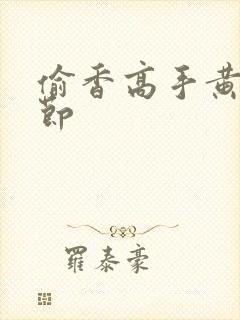 偷香高手黄
节
羅泰豪